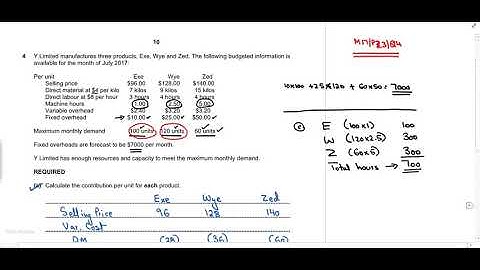 10
4 Y Limited manufactures three products, Exe, Wye and Zed. The following budgeted information is
available for the month of July 2017:
Per unit Exe Wye Zed
Selling price $96.00 $128.00 $140.00
Direct material at $4 per kilo 7 kilos 9 kilos 15 kilos
Direct labour at $8 per hour 3 hours 4 hours 4 hours
Machine hours 1.00 2.50 5.00
Variable overhead $2.40 $3.20 $3.20
Fixed overhead $10.00 $25.00 $50.00
Maximum monthly demand 100 units 120 units 60 units
Fixed overheads are forecast to be $7000 per month.
Y Limited has enough resources and capacity to meet the maximum monthly demand.
REQUIRED
(a) Calculate the contribution per unit for each product.
Exe Wye Zed
Selling Price 96 128 140
Var. Cost
DM (28) (36) (60)
M17/P23/Q4
10x100 + 25x120 + 60x50 = 7000
E (100x1) 100
W (120x2.5) 300
Z (60x5) 300
Total hours → 700